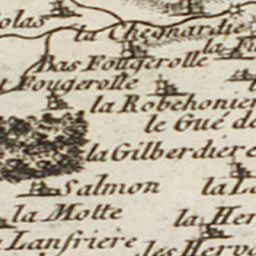 olas
la Chegnardie
la Fu
Bas Fougerolle
t Fougerolle
la Robehonier
le Gué de
la Gilberdiere
Salmon
la La
la Motte
la Her
Lanfriere
les Herv